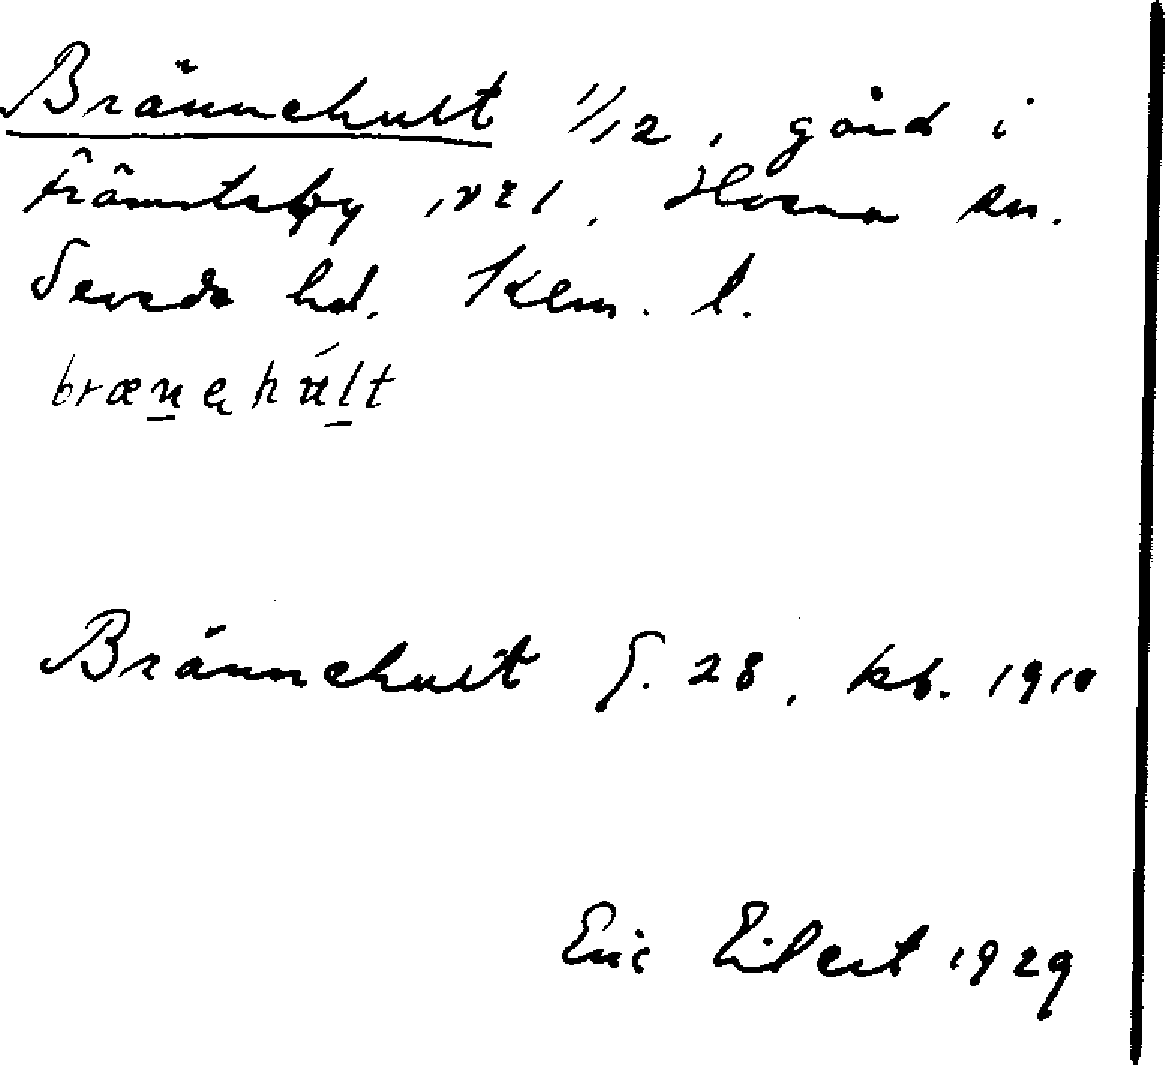 Brännehult 1/12, gård i
Främteby nr 1, Horna sn.
Sevede hd. Klm. l.
brænehúlt
Brännehult S. 28, kb. 1910
Eric Eilert 1929